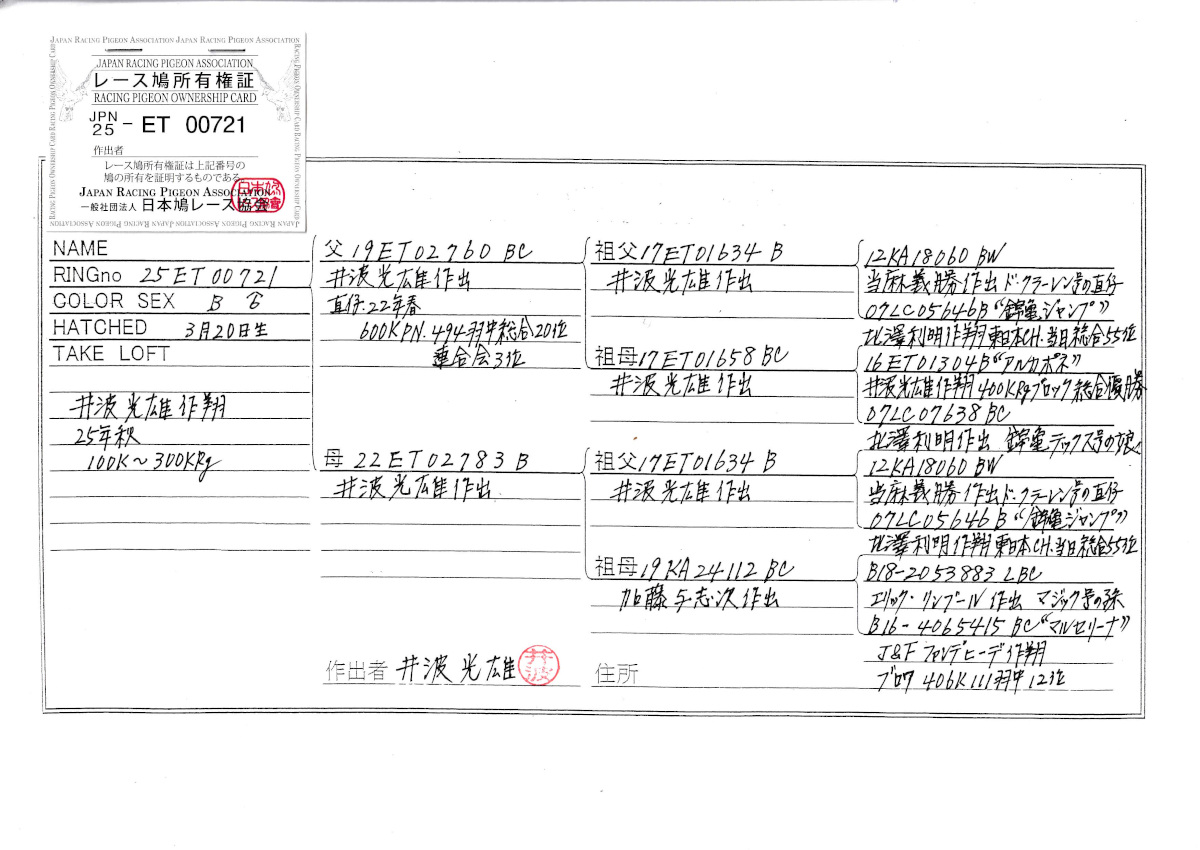 JAPAN RACING PIGEON ASSOCIATION JAPAN RACING PIGEON ASSOCIATION
JAPAN RACING PIGEON ASSOCIATION
レース鳩所有権証
RACING PIGEON OWNERSHIP CARD
JPN
25 - ET 00721
作出者
レース鳩所有権証は上記番号の
鳩の所有を証明するものである
JAPAN RACING PIGEON ASSOCIATION
一般社団法人 日本鳩レース協会
NAME
RINGno 25ET00721
COLOR SEX B ♂
HATCHED 3月20日生
TAKE LOFT
井波光雄作翔
25年秋
100K～300KRg
父 19ET02760 BC
井波光雄作出
直仔.22年春
600KPN.494羽中総合20位
連合会3位
母 22ET02783 B
井波光雄作出
作出者 井波光雄 井波
祖父17ET01634 B
井波光雄作出
祖母17ET01658 BC
井波光雄作出
祖父17ET01634 B
井波光雄作出
祖母19KA24112 BC
加藤与志次作出
住所
12KA18060 BW
当麻義勝作出ド・クラーレン号の直仔
07LC05646B "錦竜ジャンプ"
北澤利明作翔東日本CH.当日総合55位
16ET01304B "アルカポネ"
井波光雄作翔400KRgブロック総合優勝
07LC07638 BC
北澤利明作出 錦竜デックス号の娘
12KA18060 BW
当麻義勝作出ド・クラーレン号の直仔
07LC05646B "錦竜ジャンプ"
北澤利明作翔東日本CH.当日総合55位
B18-2053883 LBC
エリック・リンブール作出 マジック号の孫
B16-4065415 BC "マルセリーナ"
J&F ファンデヒーデ作翔
ブロワ 406K111羽中12位